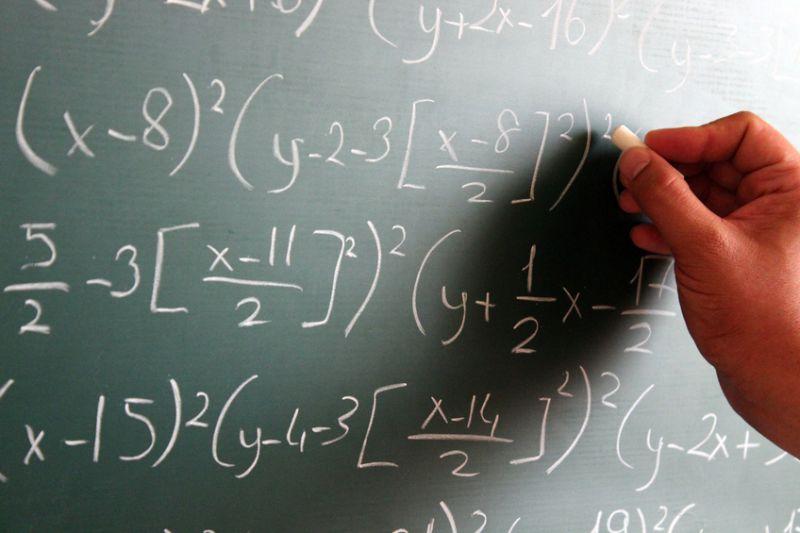 (y+2x-16)² (y
(x-8)² (y-2-3[(x-8)/2]²)²
5/2 -3[(x-11)/2]²)² (y+1/2x-17/2
(x-15)² (y-4-3[(x-14)/2]²)² (y-2x+
)² ( 19)² (